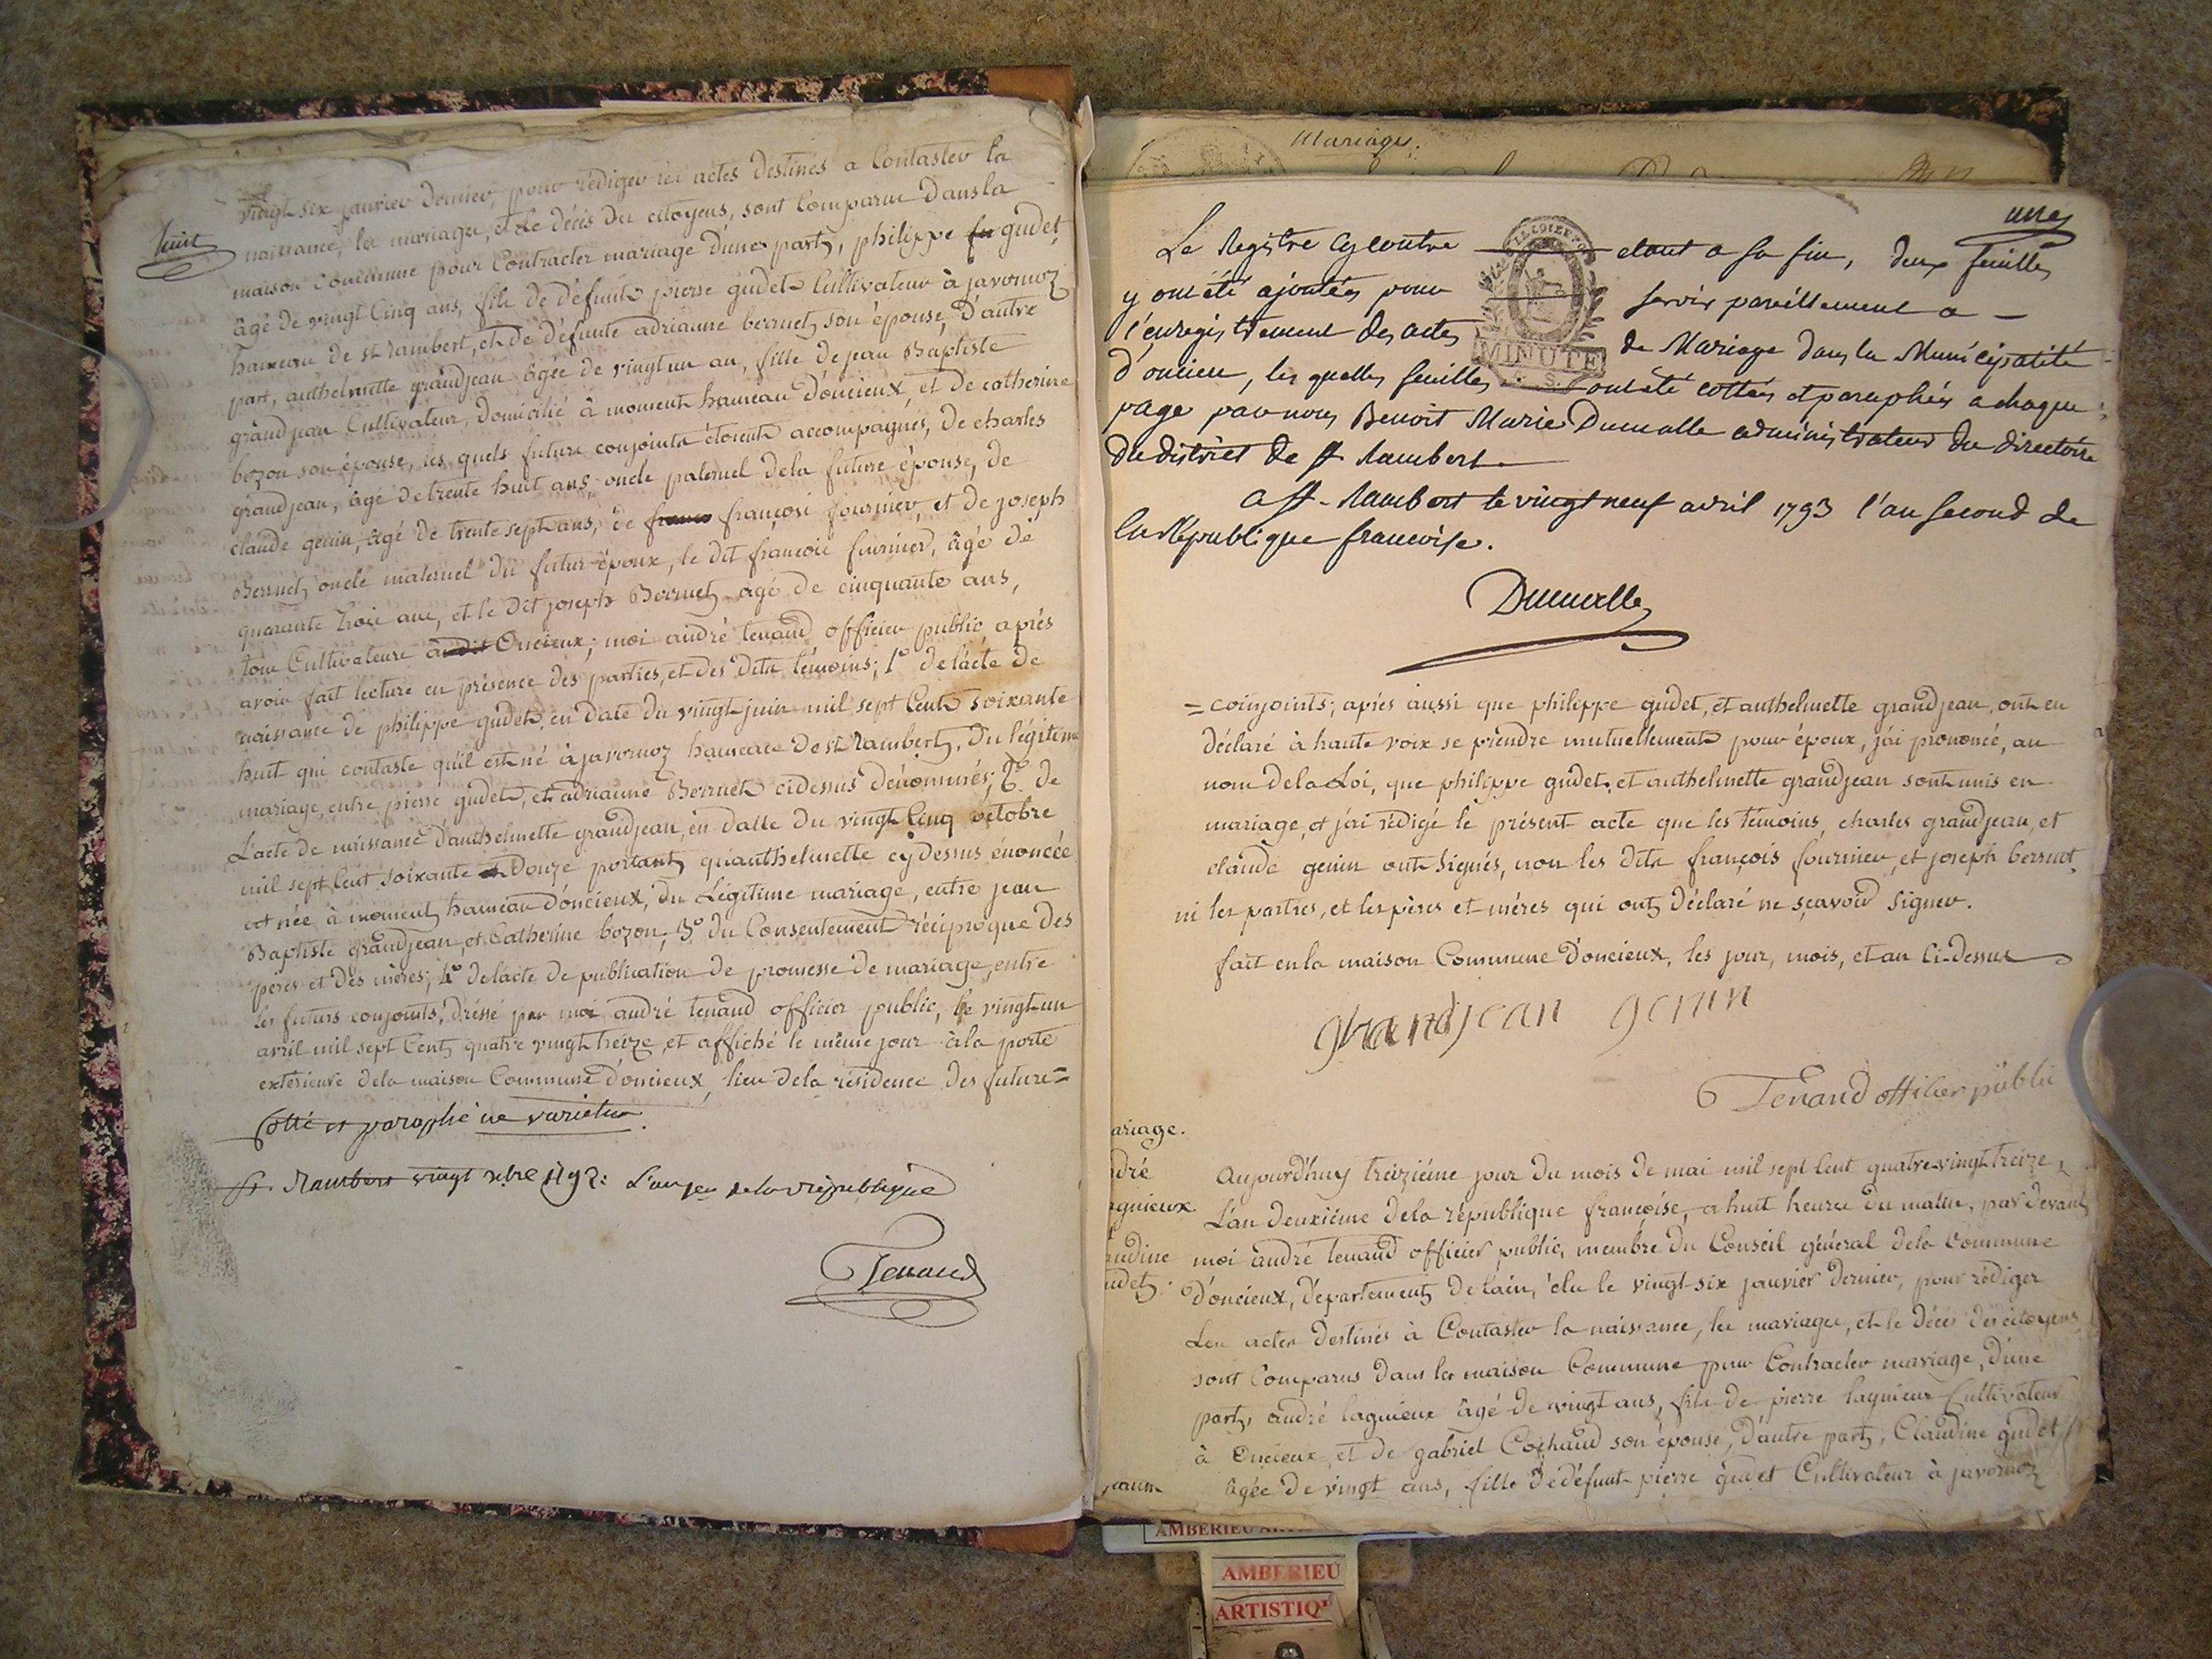 huit
vingt six janvier dernier, pour rédiger les actes destinés a Contaster la
naissance, les mariages, et le décès des citoyens, sont Comparus dans la
maison Commune pour Contracter mariage d'une part, philippe fu gudet,
âgé de vingt Cinq ans, fils de défunts pierre gudet Cultivateur à javornoz
hameau de st rambert, et de défunte adrianne berruet, son épouse, d'autre
part, anthelmette grandjean âgée de vingt un an, fille de jean Baptiste
grandjean Cultivateur, domicilié à moment hameau d'oncieux, et de catherine
bozon son épouse, les quels futurs conjoints étoient accompagnés, de charles
grandjean, âgé de trente huit ans, oncle paternel de la future épouse, de
claude genin, âgé de trente sept ans, de franco françois fournier, et de joseph
Berruet, oncle maternel du futur époux, le dit françois fournier, âgé de
quarante trois ans, et le dit joseph Berruet âgé de cinquante ans,
tous Cultivateurs audit Oncieux; moi andré tenand officier public, après
avoir fait lecture en présence des parties, et des dits témoins; 1° de l'acte de
naissance de philippe gudet, en date du vingt juin mil sept Cent soixante
huit qui contaste qu'il est né à javornoz hameau de st rambert, du légitime
mariage, entre pierre gudet, et adrianne Berruet cidessus dénommés; 2° de
L'acte de naissance d'anthelmette grandjean, en datte du vingt Cinq octobre
mil sept Cent soixante et Douze portant, qu'anthelmette cydessus énoncée
est née à moment hameau d'oncieux, du Légitime mariage, entre jean
Baptiste grandjean, et Catherine bozon, 3° du Consentement réciproque des
pères et des mères; 4° de l'acte de publication de promesse de mariage, entre
les futurs conjoints, dréssé par moi andré tenand officier public, le vingt un
avril mil sept Cent quatre vingt treize, et affiché le même jour à la porte
extérieure de la maison Commune d'oncieux, lieu de la résidence des futurs=
Cotté et paraphé ne varietur.
St. Rambert vingt xbre 1792: L'an 1er de la république
Tenand
Mariages.
unes
Le Registre cy contre etant a sa fin, deux feuilles
y ont été ajoutées pour servir pareillement a —
l'enregistrement des actes de Mariage dans la Municipalité
MINUTE
d'oncieu, les quelles feuilles ont été cottées et paraphées a chaque
page par nous Benoit Marie Ducualle administrateur du directoire
du district de st Rambert.
a st-Rambert le vingt neuf avril 1793 l'an second de
la République francoise.
=conjoints; après aussi que philippe gudet, et anthelmette grandjean, ont eu
déclaré à haute voix se prendre mutuellement pour époux, j'ai prononcé, au
nom de la Loi, que philippe gudet, et anthelmette grandjean sont unis en
mariage, et j'ai rédigé le présent acte que les témoins, charles grandjean, et
claude genin ont signés, non les dits françois fournier, et joseph berruet,
ni les parties, et les pères et mères qui ont déclaré ne sçavoir signer.
fait en la maison Commune d'oncieux, les jour, mois, et an Ci-dessus
grandjean genin
Tenand officier public
ariage.
dré
agnieux
audine
udet.
Aujourd'huy treizième jour du mois de mai mil sept Cent quatre-vingt treize,
L'an deuxième de la république françoise, a huit heures du matin, par devant
moi andré tenand officier public, membre du Conseil général de la Commune
d'oncieux, département de l'ain, élu le vingt-six janvier dernier, pour rédiger
Les actes destinés à Contaster la naissance, les mariages, et le décès des citoyens
sont Comparus dans la maison Commune pour Contracter mariage, d'une
part, andré lagnieux âgé de vingt ans, fils de pierre lagnieux Cultivateur
à Oncieux, et de gabriel Cochaud son épouse, d'autre part, Claudine gudet
âgée de vingt ans, fille de défunt pierre gudet Cultivateur à javornoz
AMBERIEU
AMBERIEU
ARTISTIQ